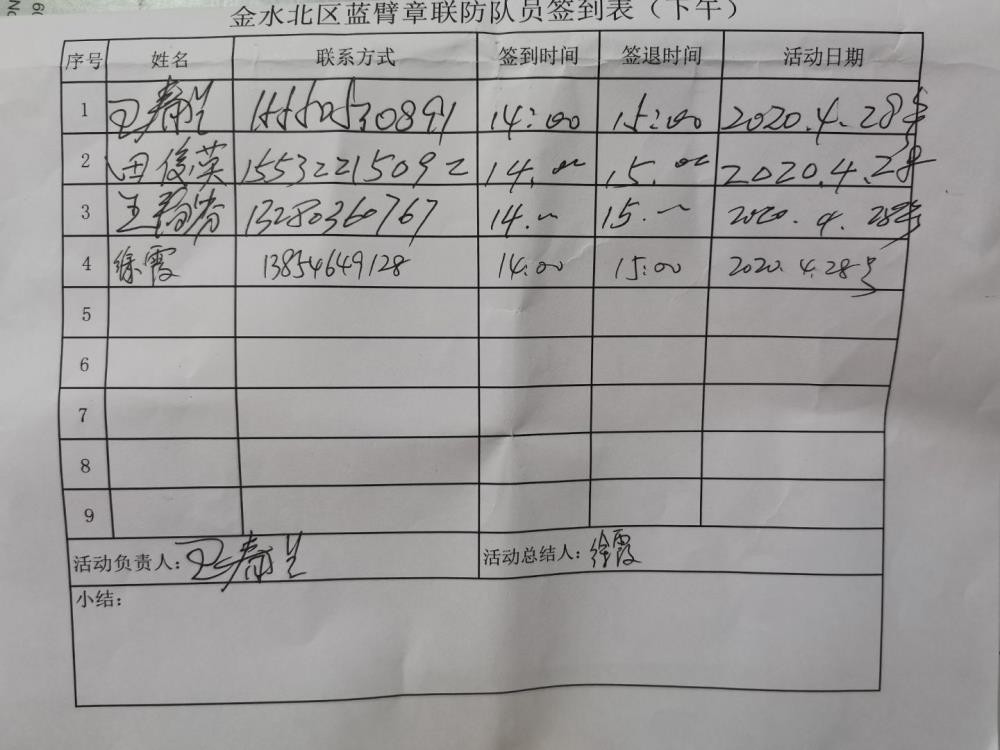 金水北区蓝臂章联防队员签到表（下午）
序号 姓名 联系方式 签到时间 签退时间 活动日期
1 14:00 15:00 2020.4.28号
2 田俊英 15532215092 14. 15. 2020.4.28
3 王 13280360767 14. 15. 2020.4.28号
4 徐霞 13854649128 14:00 15:00 2020.4.28号
5
6
7
8
9
活动负责人： 活动总结人：徐霞
小结：